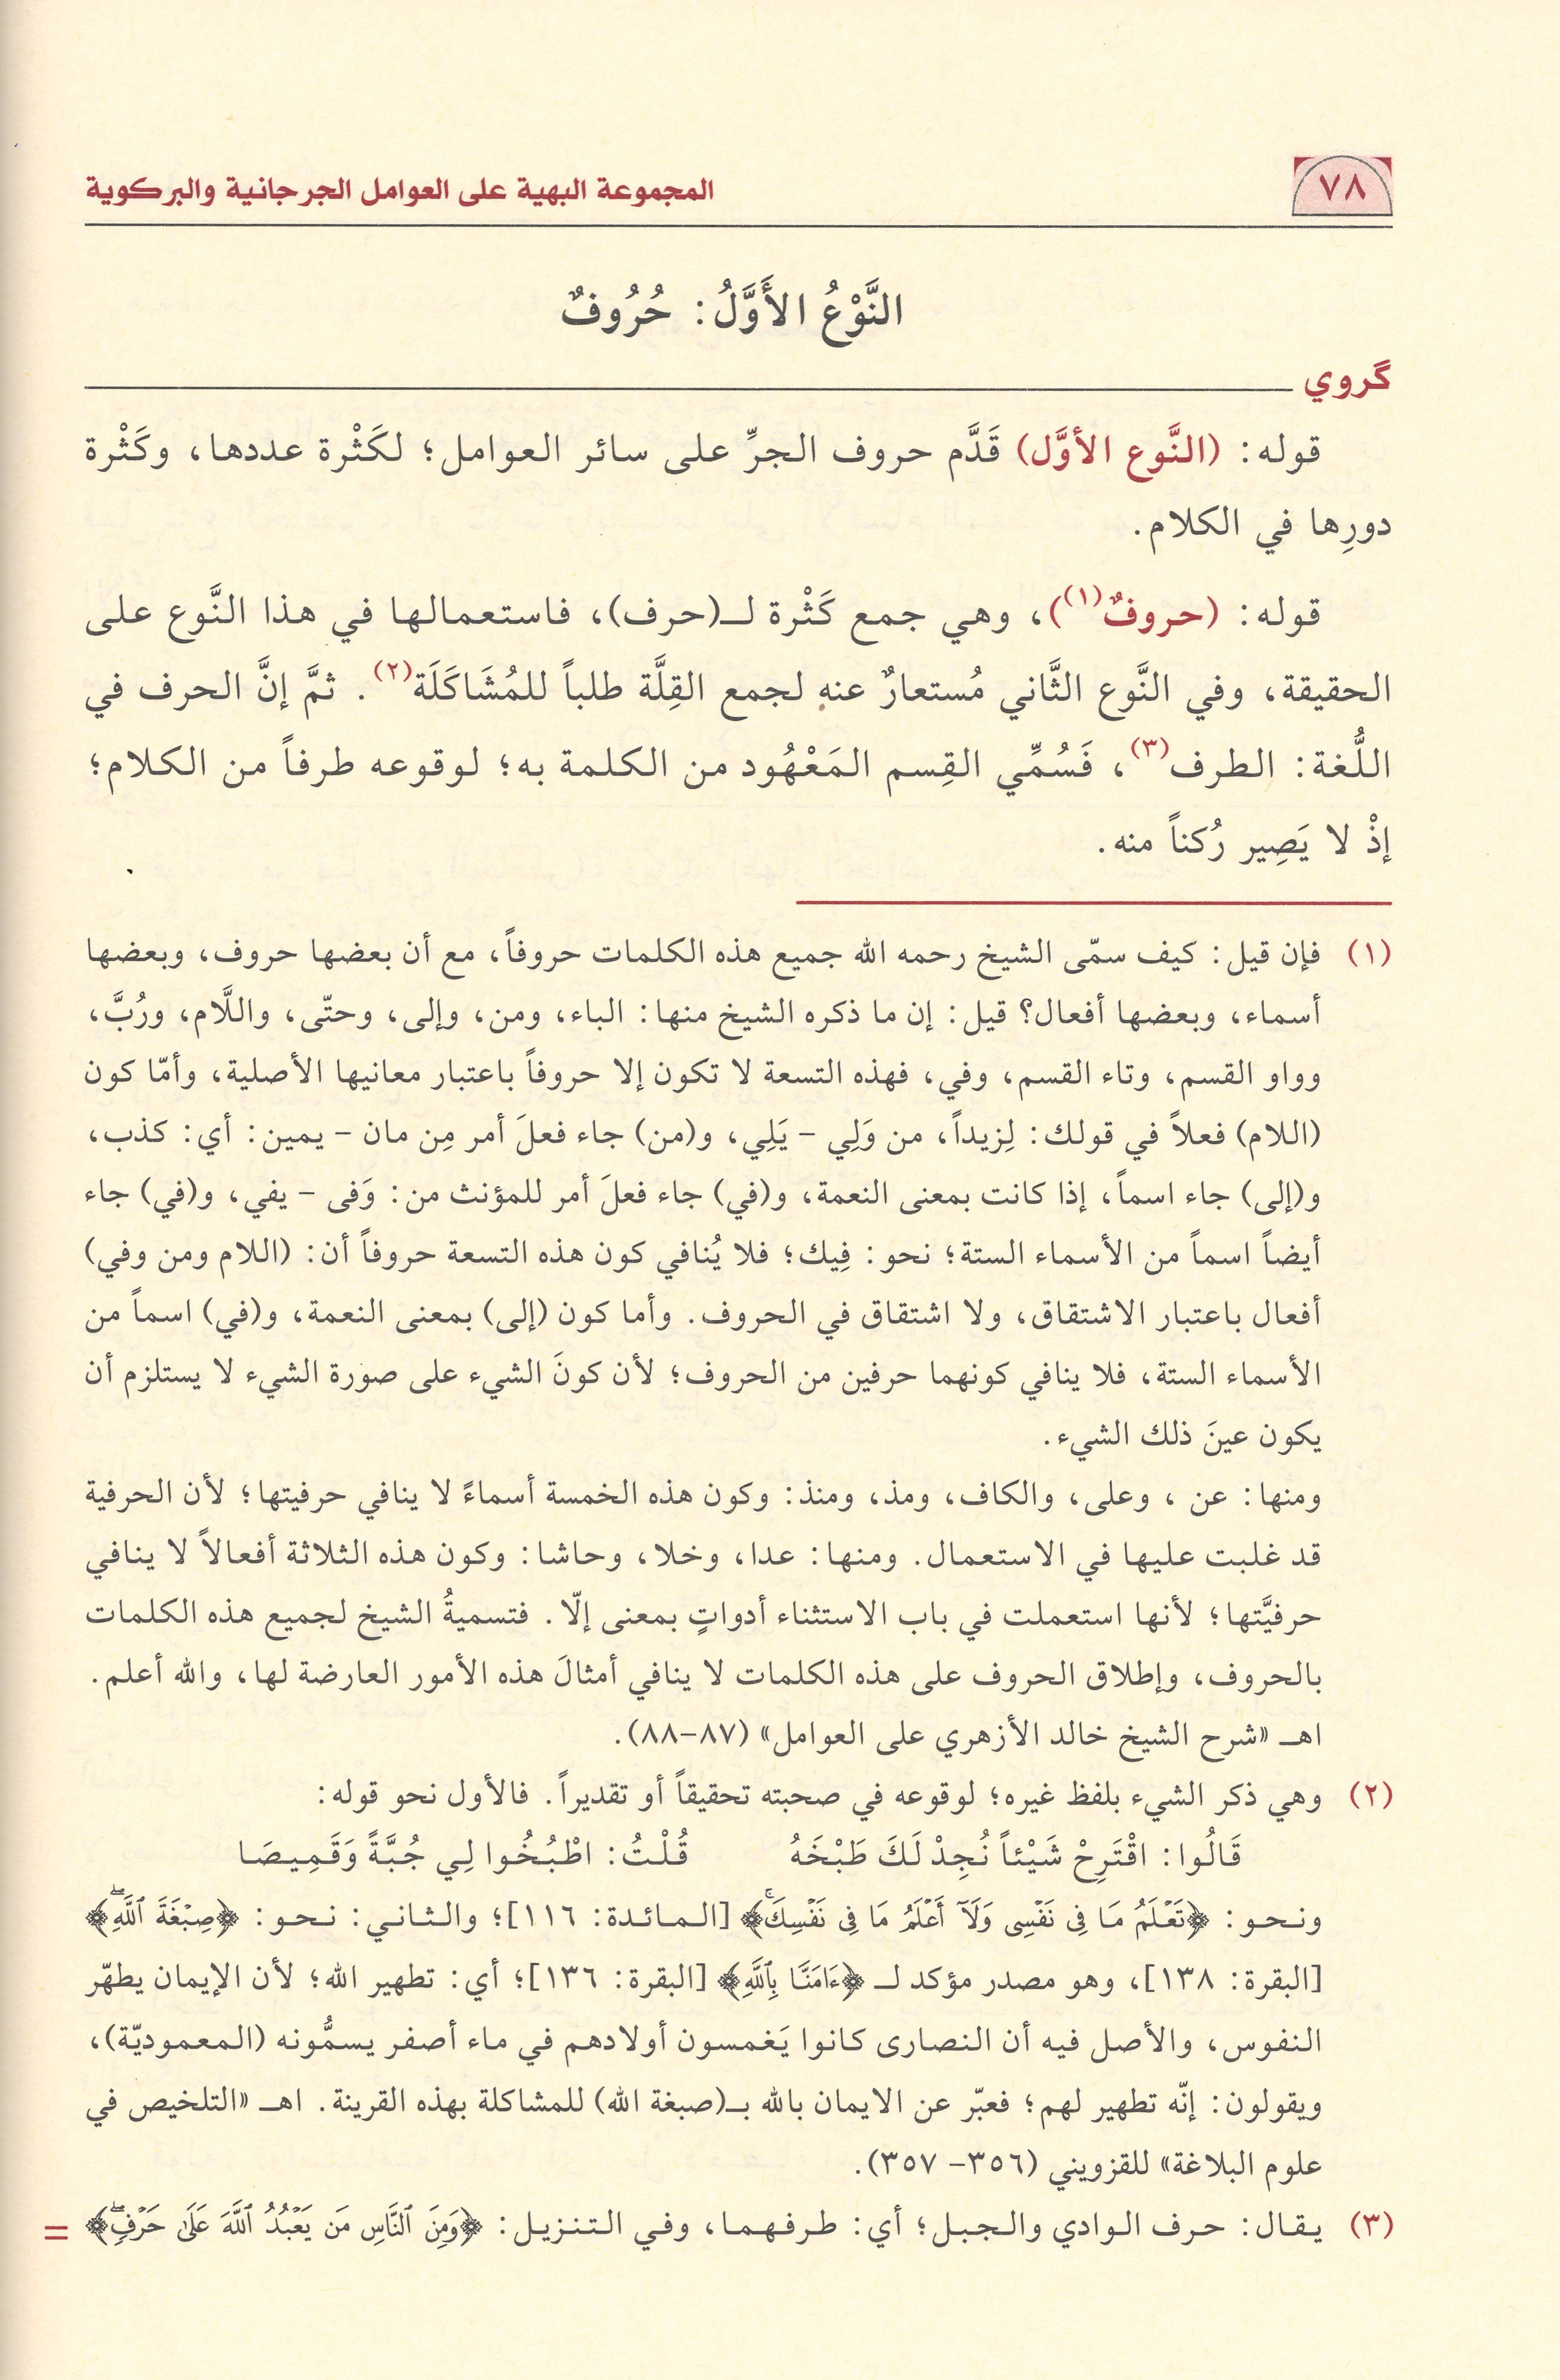 ٧٨
المجموعة البهية على العوامل الجرجانية والبركوية
النَّوْعُ الأَوَّلُ: حُرُوفٌ
گروي
قوله: (النَّوع الأوَّل) قَدَّم حروف الجرِّ على سائر العوامل؛ لكَثْرة عددها، وكَثْرة
دورِها في الكلام.
قوله: (حروفٌ(١))، وهي جمع كَثْرة لـ(حرف)، فاستعمالها في هذا النَّوع على
الحقيقة، وفي النَّوع الثَّاني مُستعارٌ عنه لجمع القِلَّة طلباً للمُشَاكَلَة(٢). ثمَّ إنَّ الحرف في
اللُّغة: الطرف(٣)، فَسُمِّي القِسم المَعْهُود من الكلمة به؛ لوقوعه طرفاً من الكلام؛
إذْ لا يَصِير رُكناً منه.
(١) فإن قيل: كيف سمّى الشيخ رحمه الله جميع هذه الكلمات حروفاً، مع أن بعضها حروف، وبعضها
أسماء، وبعضها أفعال؟ قيل: إن ما ذكره الشيخ منها: الباء، ومن، وإلى، وحتّى، واللَّام، ورُبَّ،
وواو القسم، وتاء القسم، وفي، فهذه التسعة لا تكون إلا حروفاً باعتبار معانيها الأصلية، وأمّا كون
(اللام) فعلاً في قولك: لِزيداً، من وَلِي – يَلِي، و(من) جاء فعلَ أمر مِن مان – يمين: أي: كذب،
و(إلى) جاء اسماً، إذا كانت بمعنى النعمة، و(في) جاء فعلَ أمر للمؤنث من: وَفى – يفي، و(في) جاء
أيضاً اسماً من الأسماء الستة؛ نحو: فِيك؛ فلا يُنافي كون هذه التسعة حروفاً أن: (اللام ومن وفي)
أفعال باعتبار الاشتقاق، ولا اشتقاق في الحروف. وأما كون (إلى) بمعنى النعمة، و(في) اسماً من
الأسماء الستة، فلا ينافي كونهما حرفين من الحروف؛ لأن كونَ الشيء على صورة الشيء لا يستلزم أن
يكون عينَ ذلك الشيء.
ومنها: عن ، وعلى، والكاف، ومذ، ومنذ: وكون هذه الخمسة أسماءً لا ينافي حرفيتها؛ لأن الحرفية
قد غلبت عليها في الاستعمال. ومنها: عدا، وخلا، وحاشا: وكون هذه الثلاثة أفعالاً لا ينافي
حرفيَّتها؛ لأنها استعملت في باب الاستثناء أدواتٍ بمعنى إلّا. فتسميةُ الشيخ لجميع هذه الكلمات
بالحروف، وإطلاق الحروف على هذه الكلمات لا ينافي أمثالَ هذه الأمور العارضة لها، والله أعلم.
اهـ «شرح الشيخ خالد الأزهري على العوامل» (٨٧–٨٨).
(٢) وهي ذكر الشيء بلفظ غيره؛ لوقوعه في صحبته تحقيقاً أو تقديراً. فالأول نحو قوله:
قَالُوا: اقْتَرِحْ شَيْئاً نُجِدْ لَكَ طَبْخَهُ قُلْتُ: اطْبُخُوا لِي جُبَّةً وَقَمِيصَا
ونحو: ﴿تَعْلَمُ مَا فِى نَفْسِى وَلَآ أَعْلَمُ مَا فِى نَفْسِكَ﴾ [المائدة: ١١٦]؛ والثاني: نحو: ﴿صِبْغَةَ ٱللَّهِ﴾
[البقرة: ١٣٨]، وهو مصدر مؤكد لـ ﴿ءَامَنَّا بِٱللَّهِ﴾ [البقرة: ١٣٦]؛ أي: تطهير الله؛ لأن الإيمان يطهّر
النفوس، والأصل فيه أن النصارى كانوا يَغمسون أولادهم في ماء أصفر يسمُّونه (المعموديّة)،
ويقولون: إنّه تطهير لهم؛ فعبّر عن الايمان بالله بـ(صبغة الله) للمشاكلة بهذه القرينة. اهـ «التلخيص في
علوم البلاغة» للقزويني (٣٥٦– ٣٥٧).
(٣) يقال: حرف الوادي والجبل؛ أي: طرفهما، وفي التنزيل: ﴿وَمِنَ ٱلنَّاسِ مَن يَعْبُدُ ٱللَّهَ عَلَىٰ حَرْفٍ﴾ =